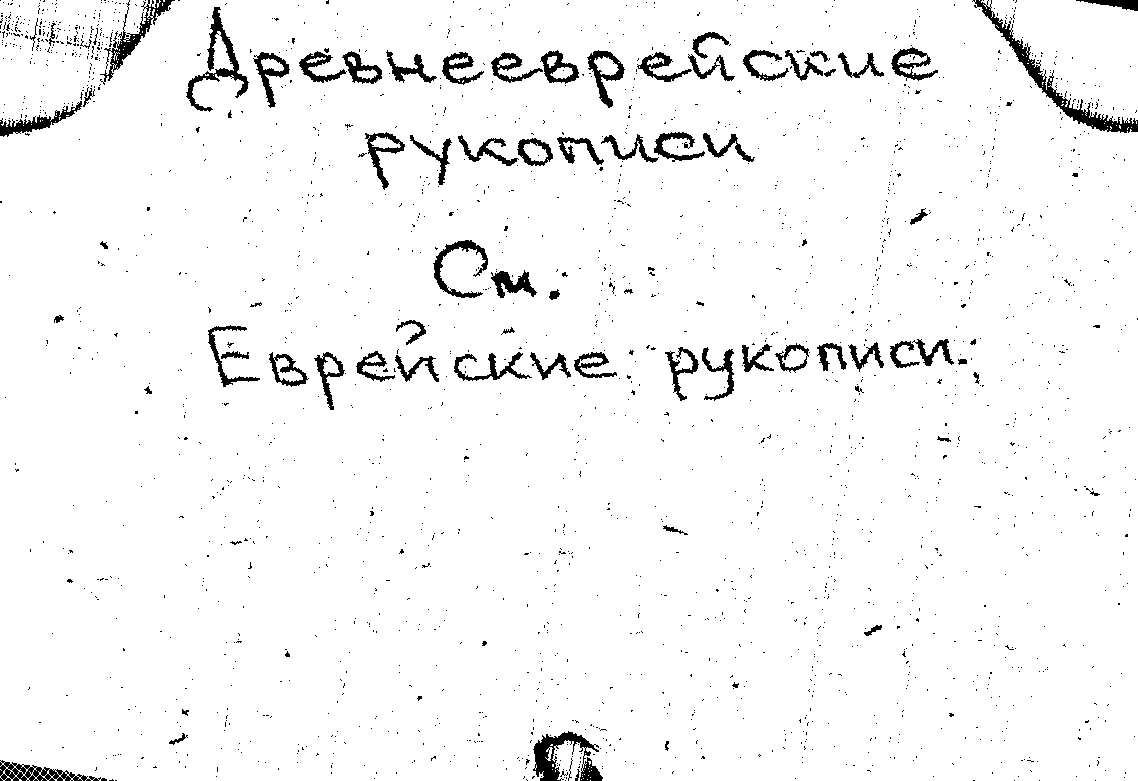 Древнееврейские
рукописи
См.
Еврейские рукописи.